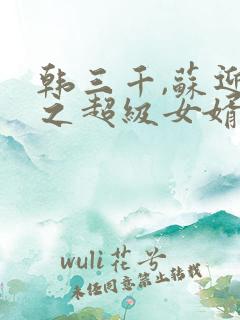 韩三千,苏迎
之超级女婿
wuli花兮
未经同意禁止转载